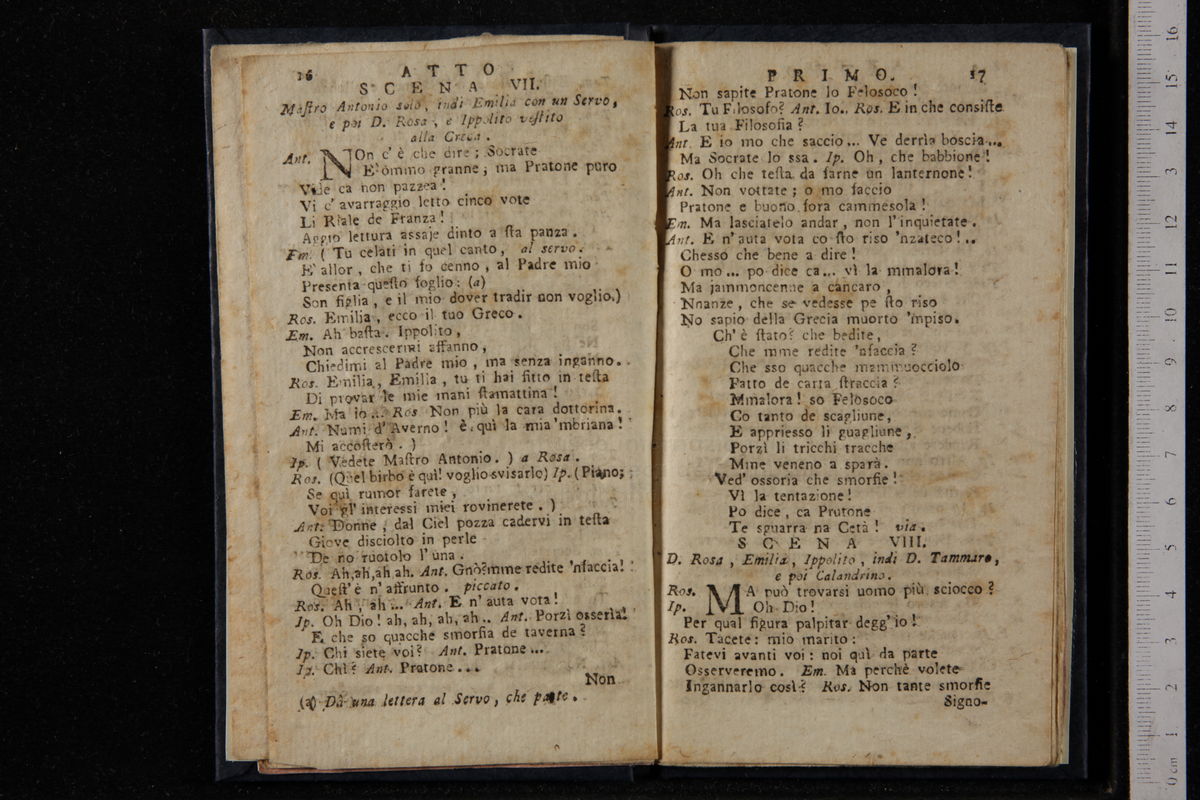 16 ATTO
SCENA VII.
Maſtro Antonio solo, indi Emilia con un Servo,
e poi D. Rosa, e Ippolito veſtito
alla Greca.
Ant. NOn c'è che dire; Socrate
E' ommo granne; ma Pratone puro
Vide ca non pazzea!
Vi c' avarraggio letto cinco vote
Li Riale de Franza!
Aggio lettura assaje dinto a ſta panza.
Em. ( Tu celati in quel canto, al servo.
E allor, che ti fo cenno, al Padre mio
Presenta queſto foglio: (a)
Son figlia, e il mio dover tradir non voglio.)
Ros. Emilia, ecco il tuo Greco.
Em. Ah baſta. Ippolito,
Non accrescermi affanno,
Chiedimi al Padre mio, ma senza inganno.
Ros. Emilia, Emilia, tu ti hai fitto in teſta
Di provar le mie mani ſtamattina!
Em. Ma io... Ros Non più la cara dottorina.
Ant. Numi d' Averno! è quì la mia 'mbriana!
Mi accoſterò. )
Ip. ( Vedete Maſtro Antonio. ) a Rosa.
Ros. (Quel birbo è quì! voglio svisarlo) Ip. (Piano;
Se quì rumor farete,
Voi gl' interessi miei rovinerete. )
Ant. Donne, dal Ciel pozza cadervi in teſta
Giove disciolto in perle
De no ruotolo l' una.
Ros. Ah, ah, ah, ah. Ant. Gnò? mme redite 'nfaccia!
Queſt' è n' affrunto. piccato.
Ros. Ah, ah... Ant. E n' auta vota!
Ip. Oh Dio! ah, ah, ah, ah.. Ant. Porzì osserìa!
E che so quacche smorfia de taverna?
Ip. Chi siete voi? Ant. Pratone...
Ip. Chì? Ant. Pratone...
Non
(a) Dà una lettera al Servo, che parte.
PRIMO. 17
Non sapite Pratone lo Felosoco!
Ros. Tu Filosofo? Ant. Io.. Ros. E in che consiſte
La tua Filosofia?
Ant. E io mo che saccio... Ve derrìa boscia...
Ma Socrate lo ssa. Ip. Oh, che babbione!
Ros. Oh che teſta da farne un lanternone!
Ant. Non vottate; o mo faccio
Pratone e buono fora cammesola!
Em. Ma lasciatelo andar, non l' inquietate.
Ant. E n' auta vota co ſto riso 'nzateco!..
Chesso che bene a dire!
O mo... po dice ca... vì la mmalora!
Ma jammoncenne a cancaro,
Nnanze, che se vedesse pe ſto riso
No sapio della Grecia muorto 'mpiso.
Ch' è ſtato? che bedite,
Che mme redite 'nfaccia?
Che sso quacche mammuocciolo
Fatto de carta ſtraccia?
Mmalora! so Felosoco
Co tanto de scagliune,
E appriesso li guagliune,
Porzì li tricchi tracche
Mme veneno a sparà.
Ved' ossoria che smorfie!
Vì la tentazione!
Po dice, ca Prutone
Te sguarra na Cetà! via.
SCENA VIII.
D. Rosa, Emilia, Ippolito, indi D. Tammaro,
e poi Calandrino.
Ros. MA può trovarsi uomo più sciocco?
Ip. Oh Dio!
Per qual figura palpitar degg' io!
Ros. Tacete: mio marito:
Fatevi avanti voi: noi quì da parte
Osserveremo. Em. Ma perchè volete
Ingannarlo così? Ros. Non tante smorfie
Signo-
0 cm 1 2 3 4 5 6 7 8 9 10 11 12 13 14 15 16